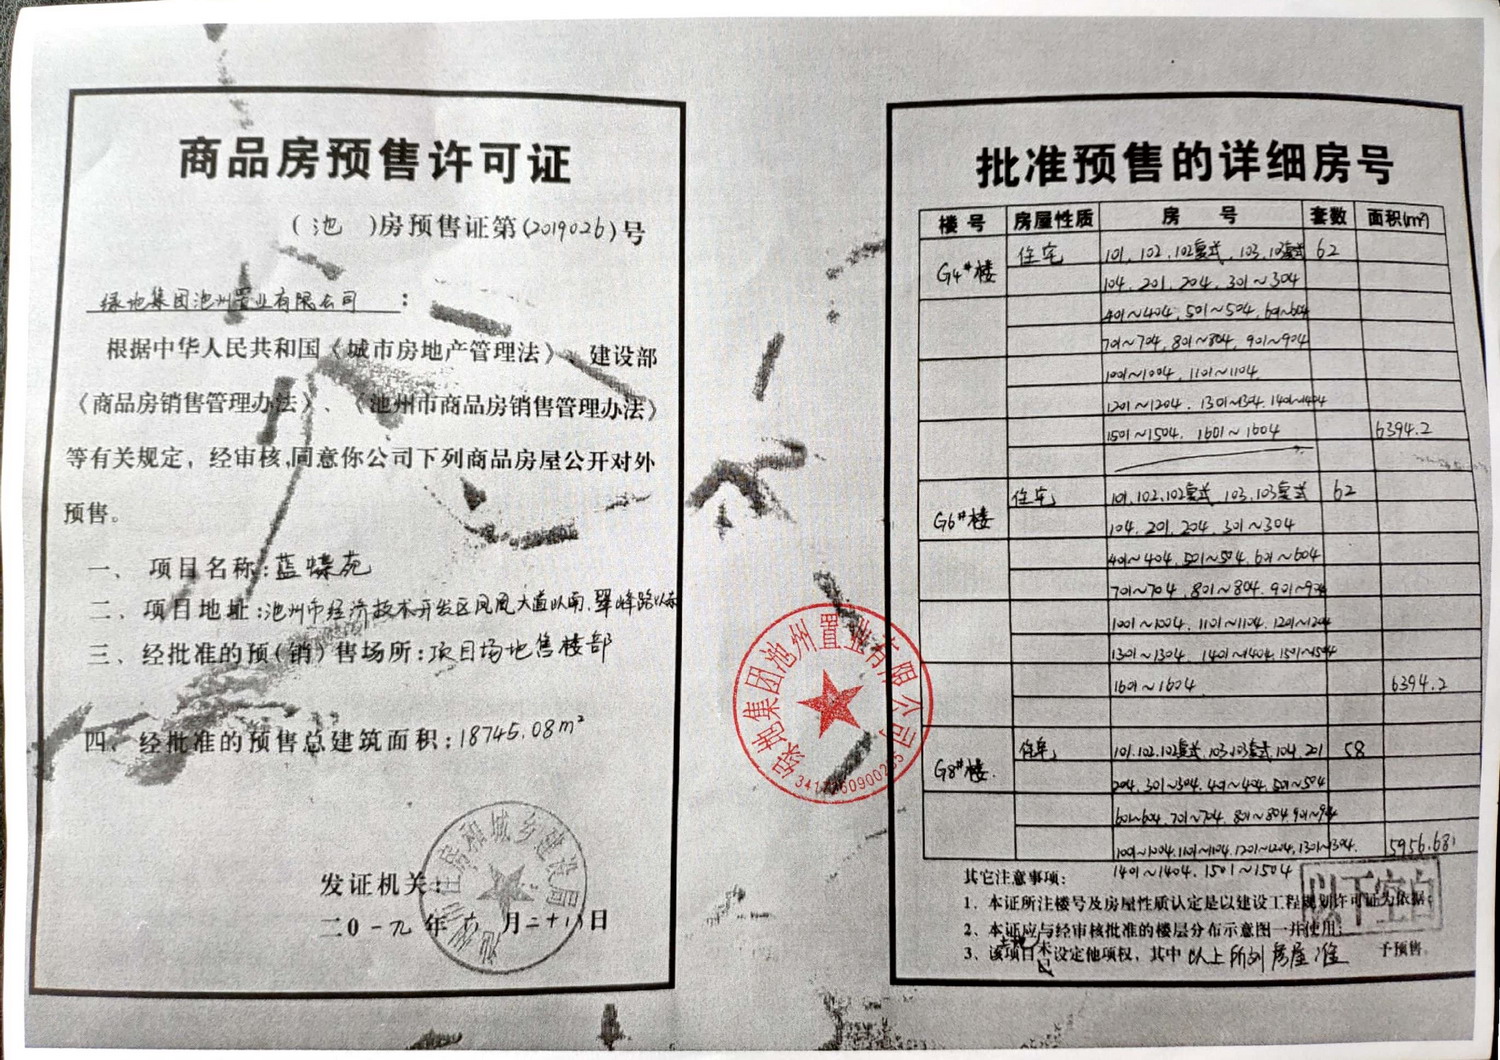 商品房预售许可证
(池 )房预售证第(2019026)号
绿地集团池州置业有限公司:
根据中华人民共和国《城市房地产管理法》、建设部
《商品房销售管理办法》、《池州市商品房销售管理办法》
等有关规定,经审核,同意你公司下列商品房屋公开对外
预售。
一、项目名称:蓝蝶苑
二、项目地址:池州市经济技术开发区凤凰大道以南、翠峰路以东
三、经批准的预(销)售场所:项目场地售楼部
四、经批准的预售总建筑面积:18745.08m²
发证机关:
二0一九年六月二十八日
池州市住房和城乡建设局
绿地集团池州置业有限公司
批准预售的详细房号
楼号 房屋性质 房号 套数 面积(m²)
G4#楼 住宅 101、102、102复式、103、103复式 62
104、201、204、301~304
401~404、501~504、601~604
701~704、801~804、901~904
1001~1004、1101~1104
1201~1204、1301~1304、1401~1404
1501~1504、1601~1604 6394.2
G6#楼 住宅 101、102、102复式、103、103复式 62
104、201、204、301~304
401~404、501~504、601~604
701~704、801~804、901~904
1001~1004、1101~1104、1201~1204
1301~1304、1401~1404、1501~1504
1601~1604 6394.2
G8#楼 住宅 101、102、102复式、103、103复式、104、201 58
204、301~304、401~404、501~504
601~604、701~704、801~804、901~904
1001~1004、1101~1104、1201~1204、1301~1304 5956.681
1401~1404、1501~1504
以下空白
其它注意事项:
1、本证所注楼号及房屋性质认定是以建设工程规划许可证为依据;
2、本证应与经审核批准的楼层分布示意图一并使用;
3、该项目土地未设定他项权,其中以上所列房屋准予预售。